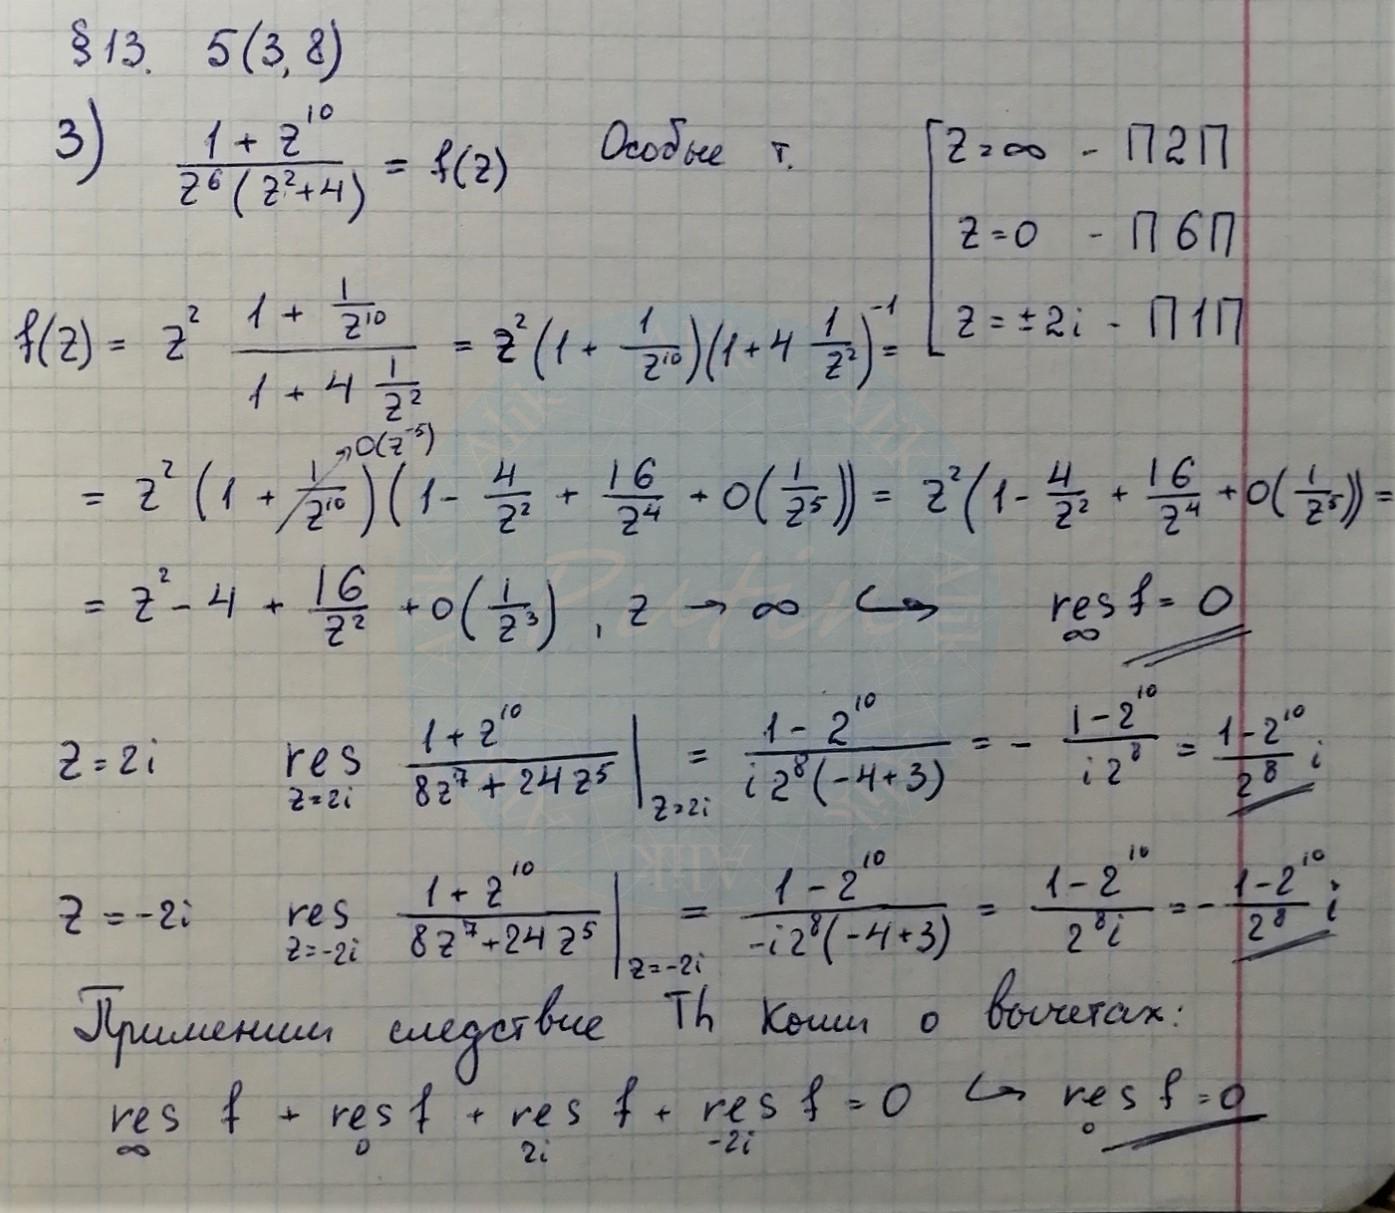 §13. 5(3,8)
3) (1 + z^10)/(z^6(z^2+4)) = f(z) Особые т. [ z=∞ - П2П
z=0 - П6П
z=±2i - П1П
f(z) = z^2 (1 + 1/z^10)/(1 + 4 1/z^2) = z^2(1 + 1/z^10)(1+4 1/z^2)^-1 =
→O(z^-5)
= z^2 (1 + 1/z^10)(1 - 4/z^2 + 16/z^4 + O(1/z^5)) = z^2(1 - 4/z^2 + 16/z^4 + O(1/z^5)) =
= z^2 - 4 + 16/z^2 + O(1/z^3), z → ∞ ↪ res_∞ f = 0
z=2i res_{z=2i} (1+z^10)/(8z^7+24z^5) |_{z=2i} = (1-2^10)/(i2^8(-4+3)) = - (1-2^10)/(i2^8) = (1-2^10)/2^8 i
z=-2i res_{z=-2i} (1+z^10)/(8z^7+24z^5) |_{z=-2i} = (1-2^10)/(-i2^8(-4+3)) = (1-2^10)/(2^8i) = - (1-2^10)/2^8 i
Применим следствие Th Коши о вычетах:
res_∞ f + res_0 f + res_{2i} f + res_{-2i} f = 0 ↪ res_0 f = 0
Alik Alik Alik Alik Alik Alik Alik
Putin